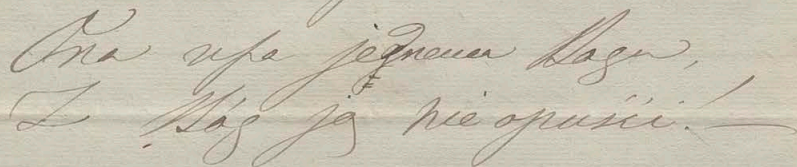 Ona ufa jednemu Bogu,
I Bóg ją nie opuści! —